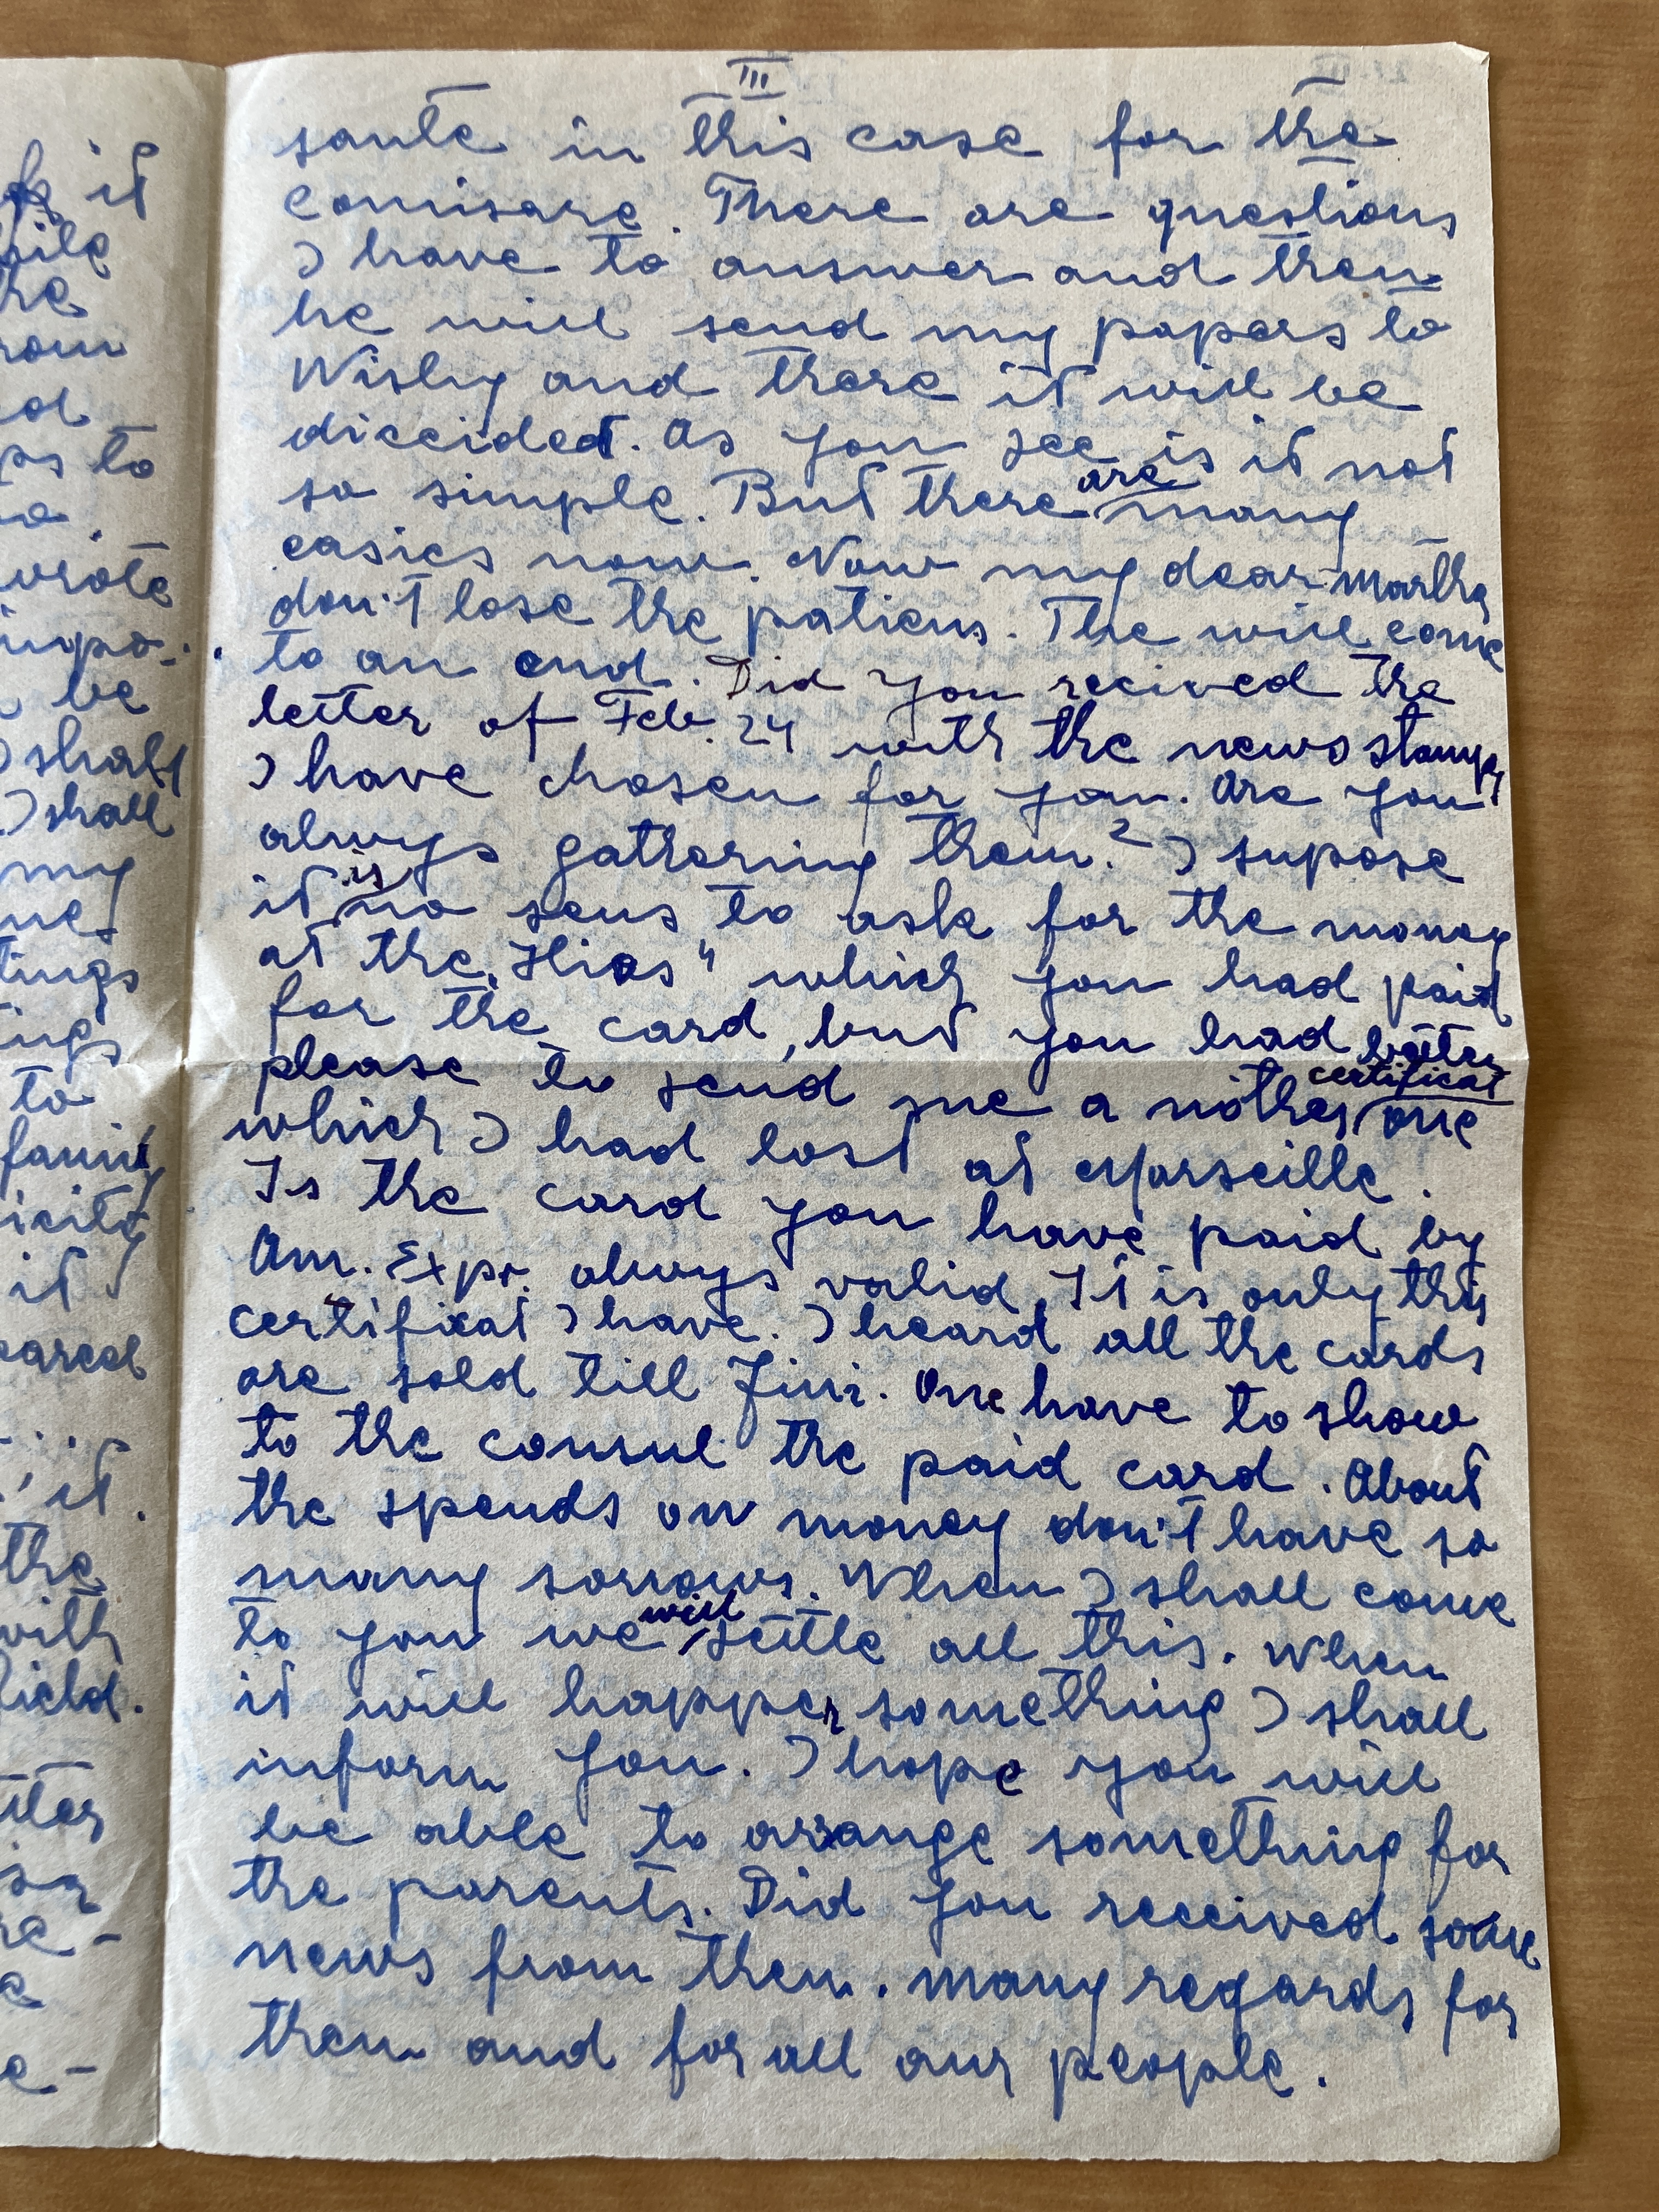 III
sante in this case for the
comisare. There are questions
I have to answer and then
he will send my papers to
Wishy and there it will be
diccided. As you see is it not
so simple. But there are many
easies now. Now my dear Martha
don't lose the patiens. The will come
to an end. Did you recived the
letter of Feb. 24 with the news stamps
I have chosen for you. Are you
always gathering them? I supose
it is no sens to ask for the money
at the „Hias" which you had paid
for the card, but you had better
please to send me a nother certificat one
which I had lost at Marseille.
Is the card you have paid by
Am. Expr. always valid. It is only this
certifixat I have. I heard all the cards
are sold till Jini. One have to show
to the consul the paid card. About
the spends on money don't have so
many sorrows. When I shall come
to you we will settle all this. When
it will happen something I shall
inform you. I hope you will
be able to arrange something for
the parents. Did you received some
news from them. Many regards for
them and for all our people.
it
rom
to
wrote
inpo-
be
I shall
I shall
my
tings
to
it
it.
the
with
field.